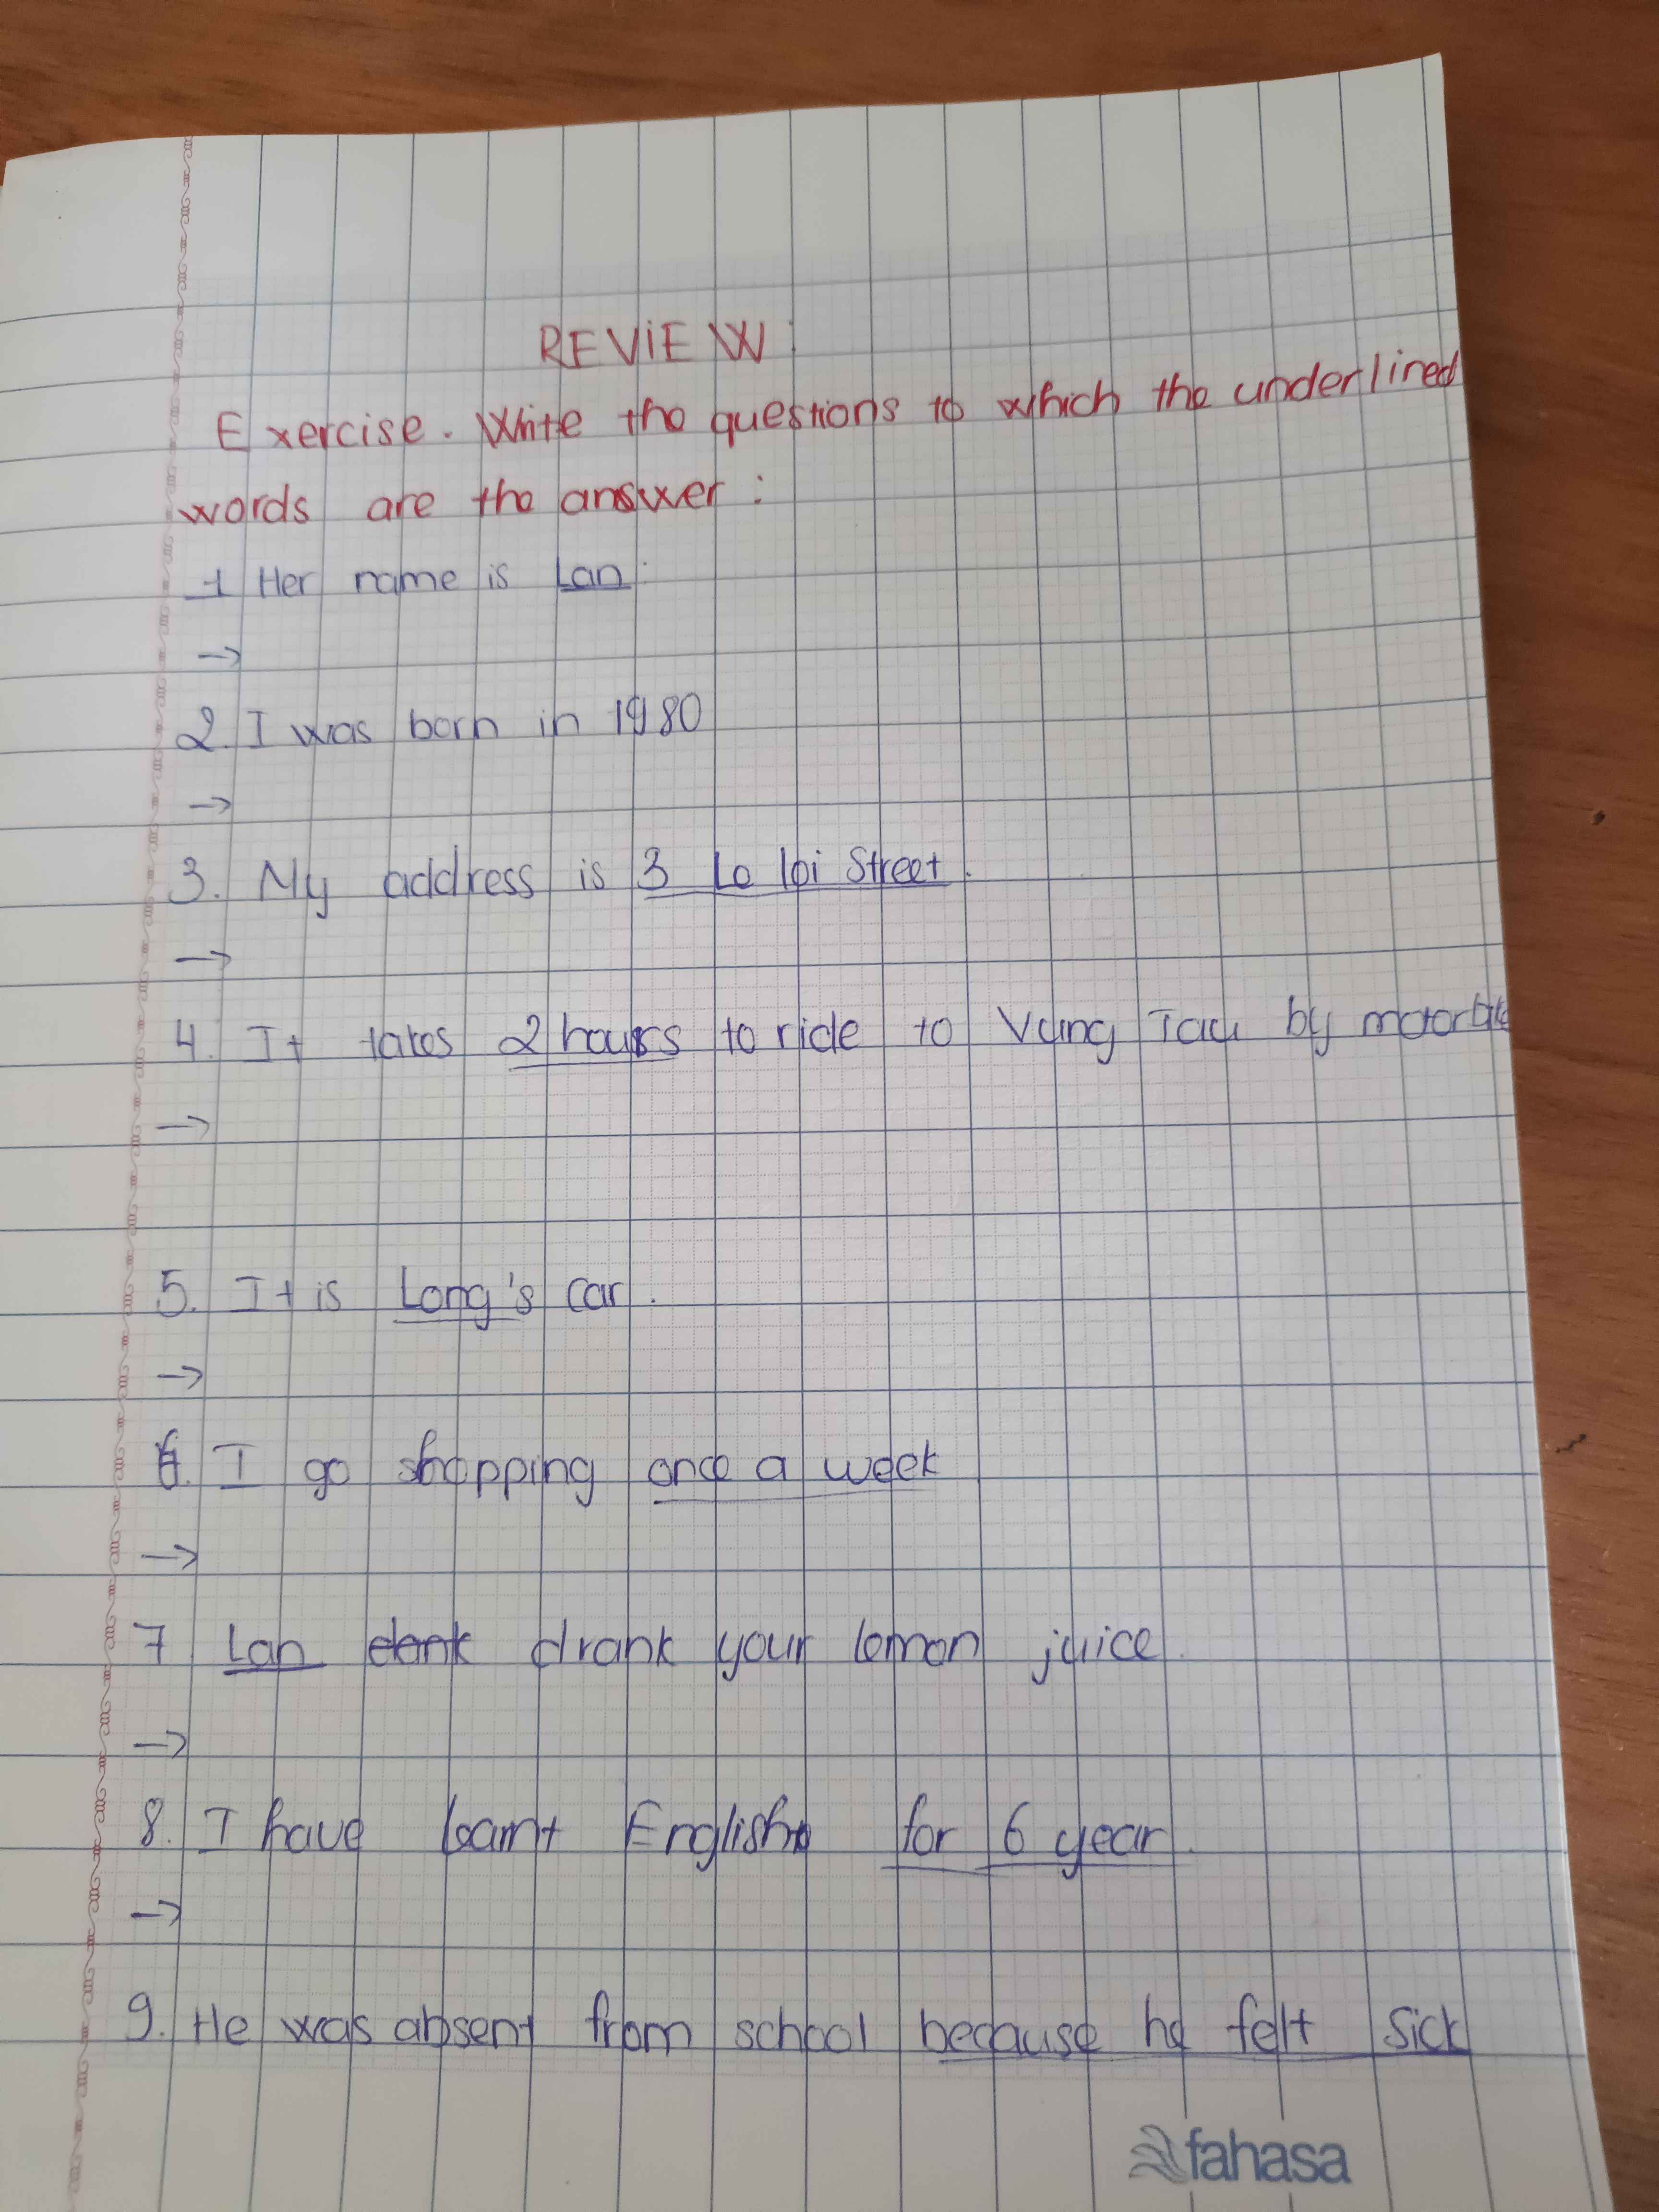 REVIEW:
Exercise. Write the questions to which the underlined
words are the answer:
1 Her name is Lan.
→
2. I was born in 1980
→
3. My address is 3 Le loi Street.
→
4. It takes 2 hours to ride to Vung Tau by motorbike
→
5. It is Long's car.
→
6. I go shopping once a week
→
7 Lan drank your lemon juice.
→
8. I have learnt English for 6 year.
→
9. He was absent from school because he felt sick
fahasa